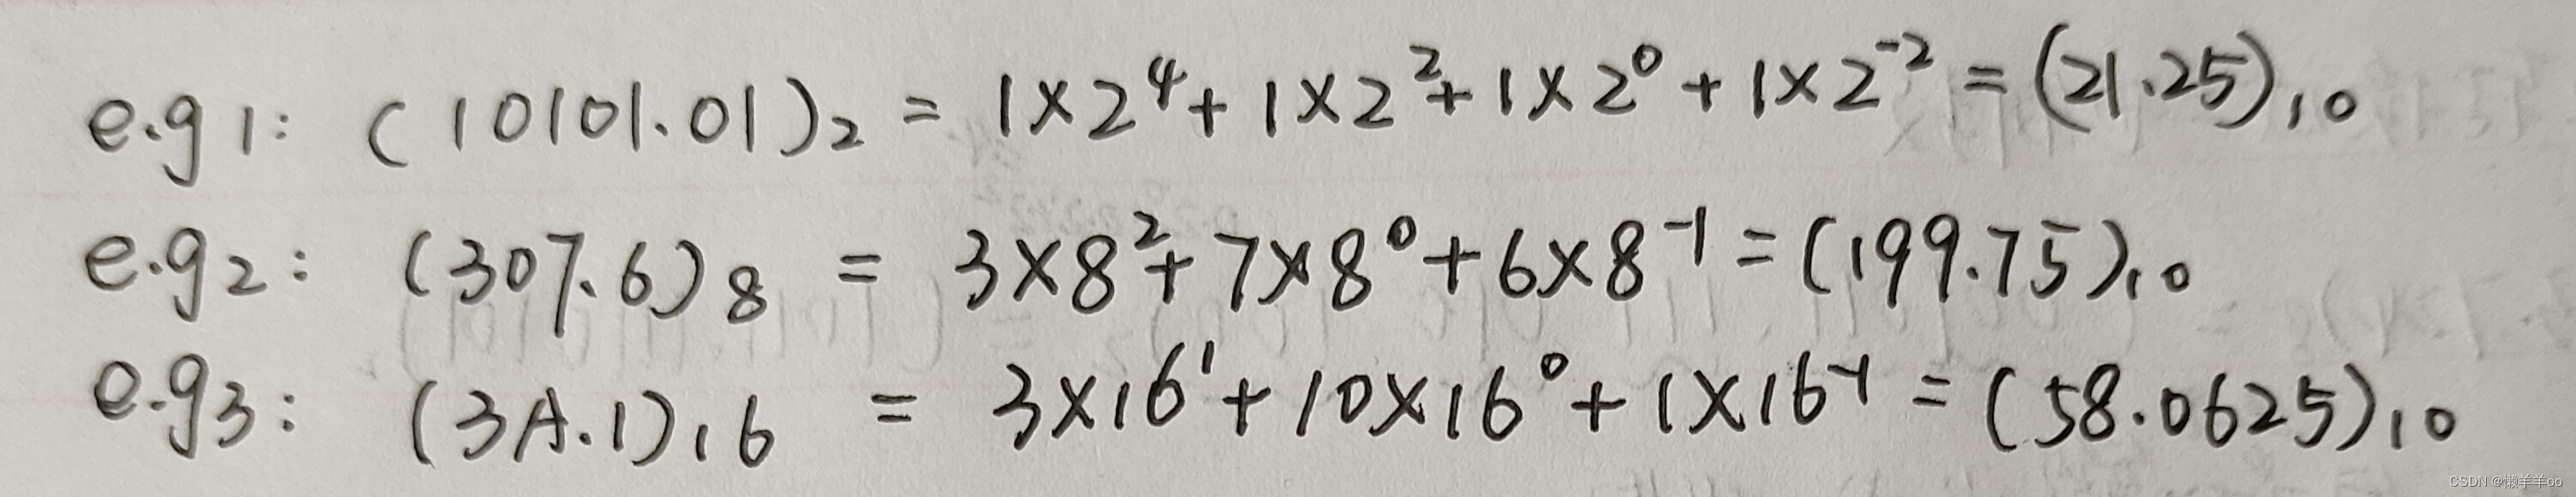 e.g 1: (10101.01)₂ = 1×2⁴+1×2²+1×2⁰+1×2⁻² = (21.25)₁₀
e.g 2: (307.6)₈ = 3×8²+7×8⁰+6×8⁻¹ = (199.75)₁₀
e.g 3: (3A.1)₁₆ = 3×16¹+10×16⁰+1×16⁻¹ = (58.0625)₁₀
CSDN @懒羊羊oo